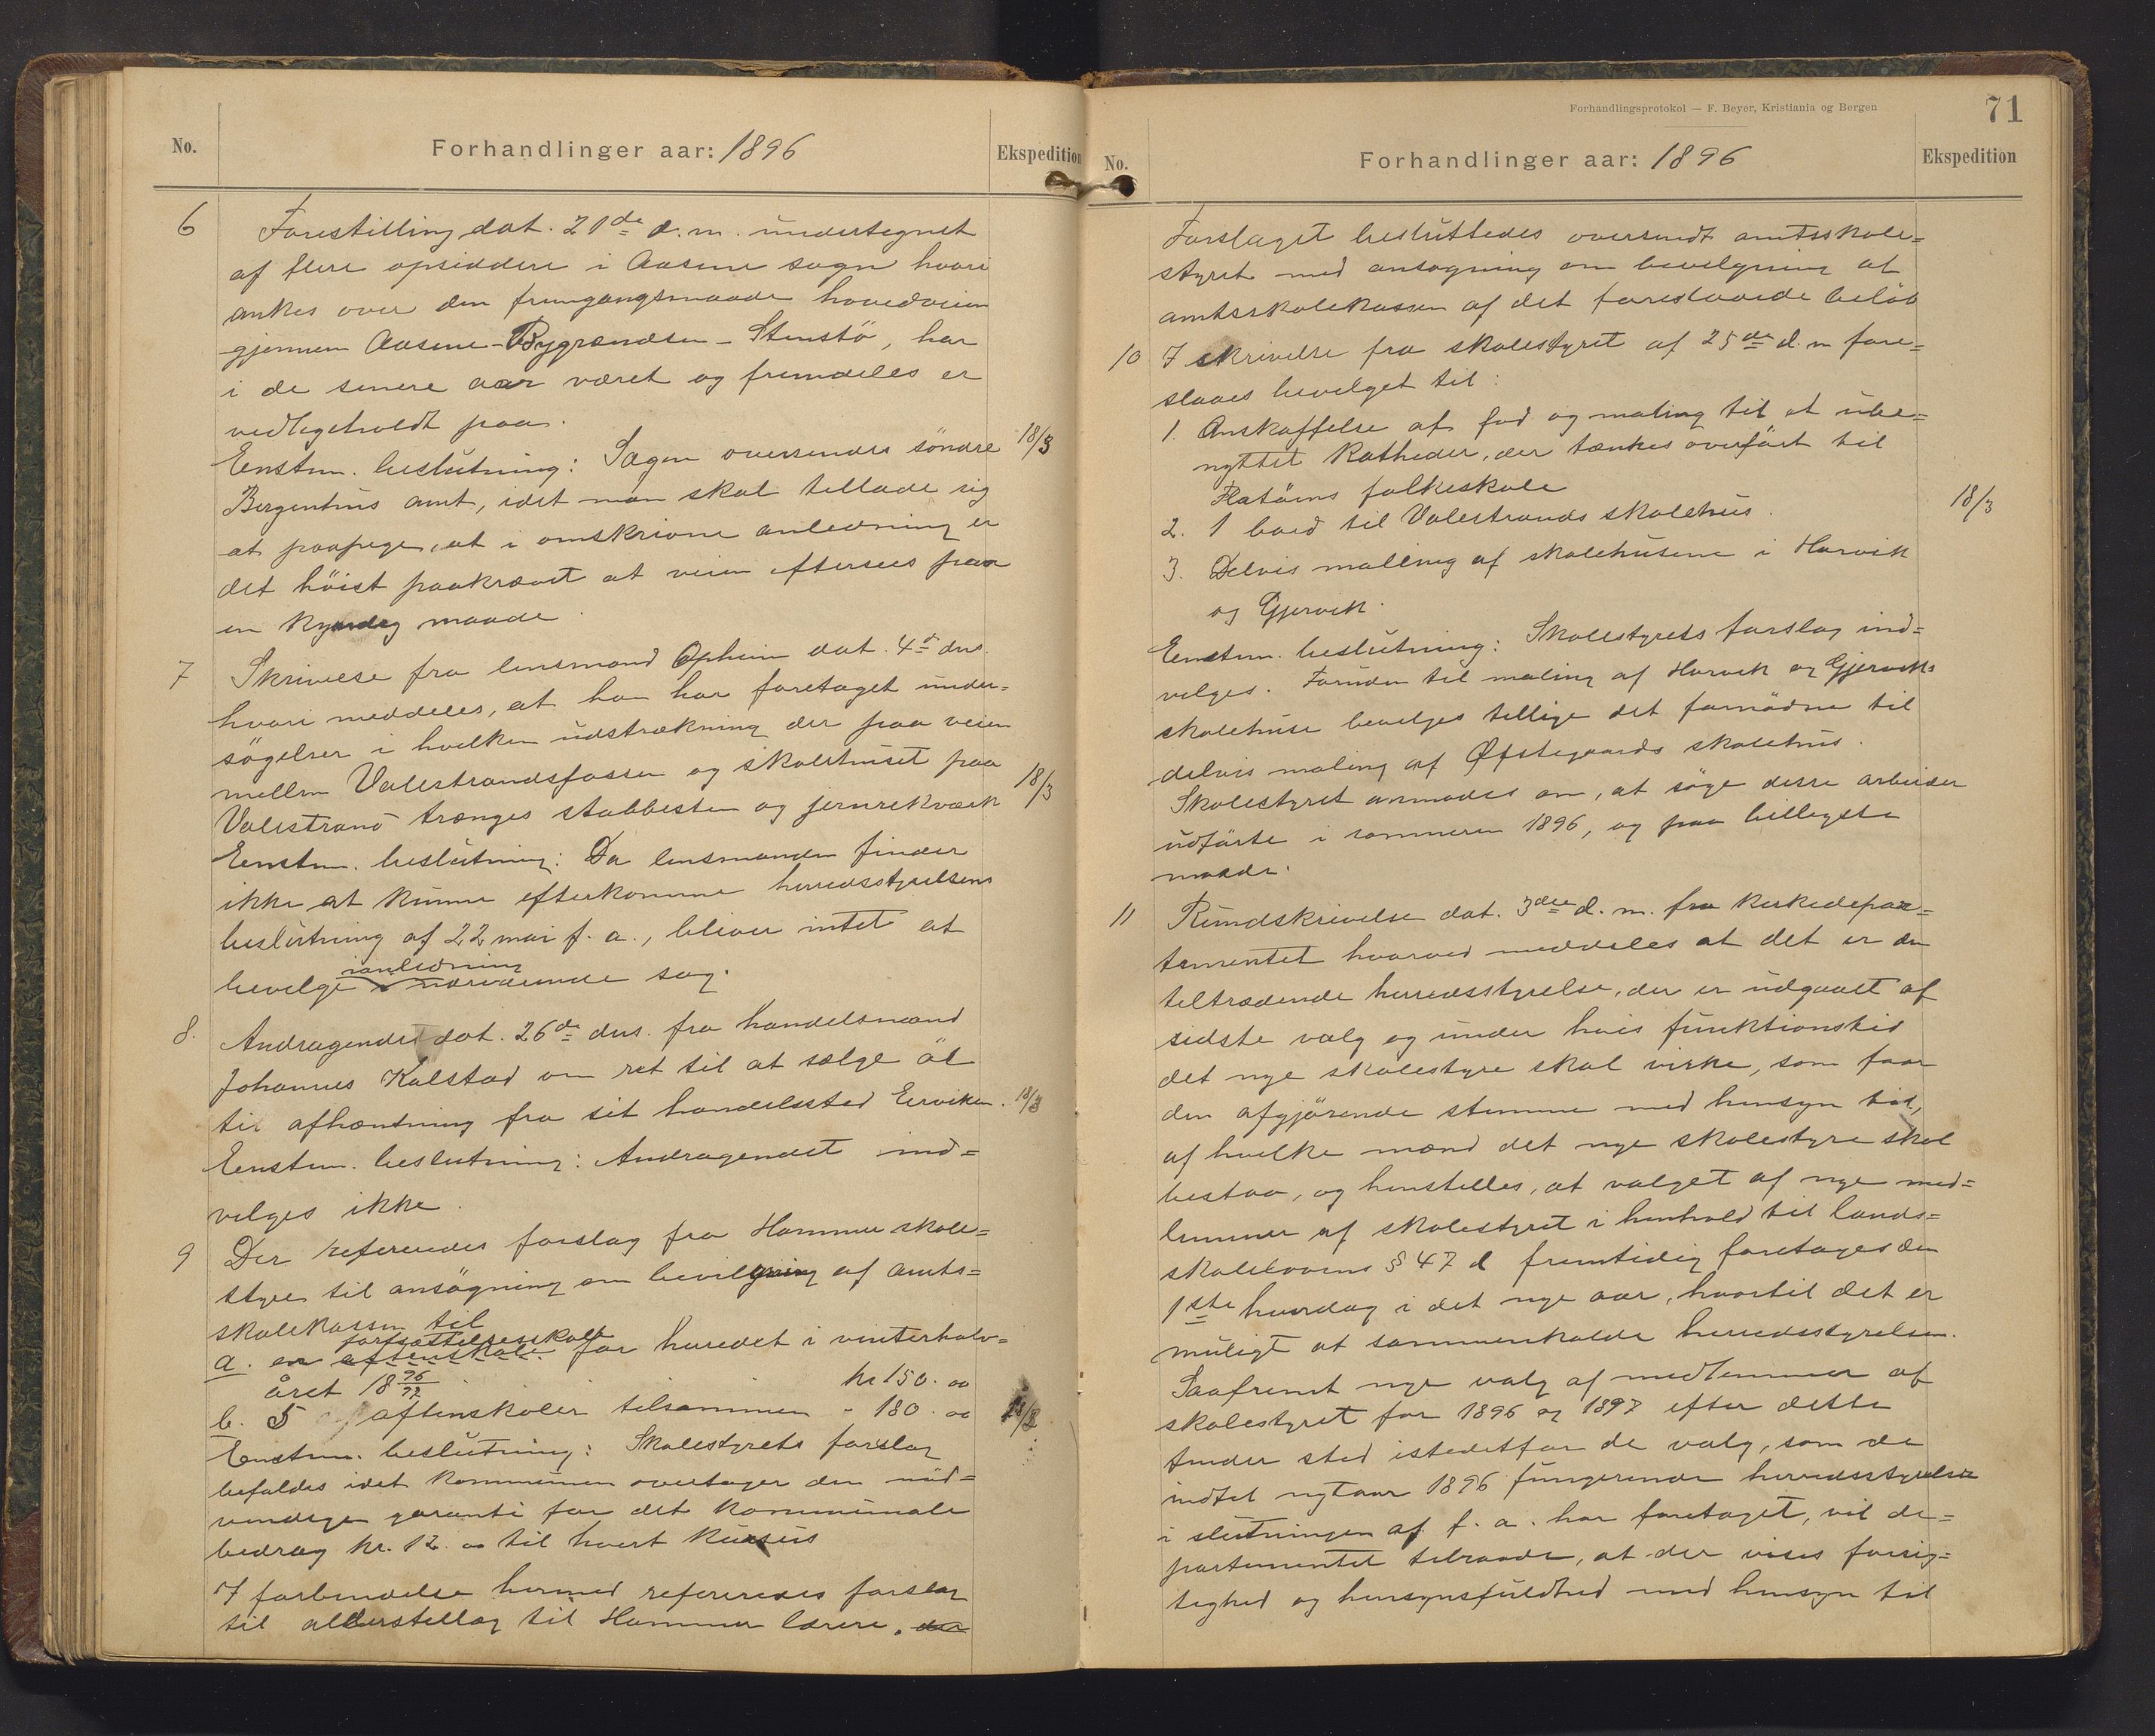 No.
Forhandlinger aar: 1896
Ekspedition
6 Forestilling dat. 21de d.m. undertegnet
af flere opsiddere i Aasene sogn hvori
ankes over den fremgangsmaade hovedveien
gjennem Aasene-Bygrændsen-Stenstö, har
i de senere aar været og fremdeles er
vedlegeholdt paa.
Eenstm. beslutning: Sagen oversendes söndre 18/3
Bergenhus amt, idet man skal tellade sig
at paapege, at i omskrivne anledning er
det höist paakrævet at veien eftersees paa
en kyndig maade
7 Skrivelse fra lensmand Opheim dat. 4de dns.
hvori meddeles, at han har foretaget under=
sögelser i hvilken udstrækning der paa veien
mellem Valestrandsfossen og skolehuset paa 18/3
Valestrand trænges stabbesten og jernrekværk
Eenstm. beslutning: Da lensmanden finder
ikke at kunne efterkomme herredsstyrelsens
beslutning af 22 mai f.a., bliver intet at
bevilge ianledning nærværende sag.
8. Andragende dat. 26de dns. fra handelsmand
Johannes Kalstad om ret til at sælge öl
til afhæntning fra sit handelssted Eerviken. 18/3
Eenstm. beslutning: Andragendet ind=
velges ikke.
9 Der refereredes forslag fra Hammer skole=
styre til ansögning om bevilgning af amts=
skolekassen til
fortsættelsesskole
a. en aftenskole for herredet i vinterhalv=
året 18 96/97 kr 150. oo
b. 5 aftenskoler tilsammen - 180. oo 18/3
Eenstm. beslutning: Skolestyrets forslag
befaldes idet kommunen overtager den nöd=
vendige garanti for det kommunale
bedrag kr. 12. oo til hvert kursus
I forbindelse hermed refereredes forslag
til alderstillæg til Hammer lærere. der
Forhandlingsprotokol — F. Beyer, Kristiania og Bergen
71
No.
Forhandlinger aar: 1896
Ekspedition
Forslaget besluttedes oversendt amtsskole=
styret med ansøgning om bevilgning af
amtsskolekassen af det foreslaaede belöb
10 I skrivelse fra skolestyret af 25de d.m fore=
slaaes bevilget til:
1. Anskaffelse af fod og maling til et ube=
nyttet Katheder, der tænkes overfört til
Flatöens folkeskole
2. 1 bord til Valestrands skolehus. 18/3
3. Delvis malling af skolehusene i Horvik
og Gjervik.
Eenstm. beslutning: Skolestyrets forslag ind=
velges. Foruden til maling af Horvik og Gjerviks
skolehuse bevilges tellige det fornödne til
delvis maling af Øfstegaards skolehus.
Skolestyret anmodes om, at söge desse arbeider
udförte i sommeren 1896, og paa billigste
maade.
11 Rundskrivelse dat. 3die d.m. fra kirkedepar=
tementet hvorved meddeles at det er den
teltrædende herredsstyrelse, der er udgaaet af
sidste valg og under hvis funktionstid
det nye skolestyre skal virke, som faar
den afgjörende stemme med hensyn til,
af hvilke mænd det nye skolestyre skal
bestaa, og henstelles, at valget af nye med=
lemmer af skolestyret i henhold til lands=
skolelovens § 47 d fremtidig foretages den
1ste hverdag i det nye aar, hvortil det er
muligt at sammenkalde herredsstyrelsen.
Saafremt nye valg af medlemmer af
skolestyret for 1896 og 1897 efter dette
finder sted istedetfor de valg, som de
indtil nytaar 1896 fungerende herredsstyrelser
i slutningen af f.a. har foretaget, vil de=
partementet tilraade, at der vises forsig=
tighed og hensynsfuldhed med hensyn til